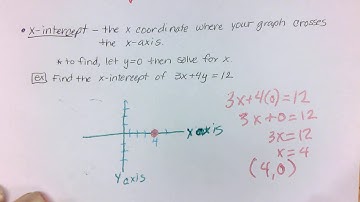 • x-intercept – the x coordinate where your graph crosses
the x-axis.
* to find, let y=0 then solve for x.
ex Find the x-intercept of 3x+4y=12
3x+4(0)=12
3x+0=12
3x=12
x=4
(4,0)
4
x axis
y axis